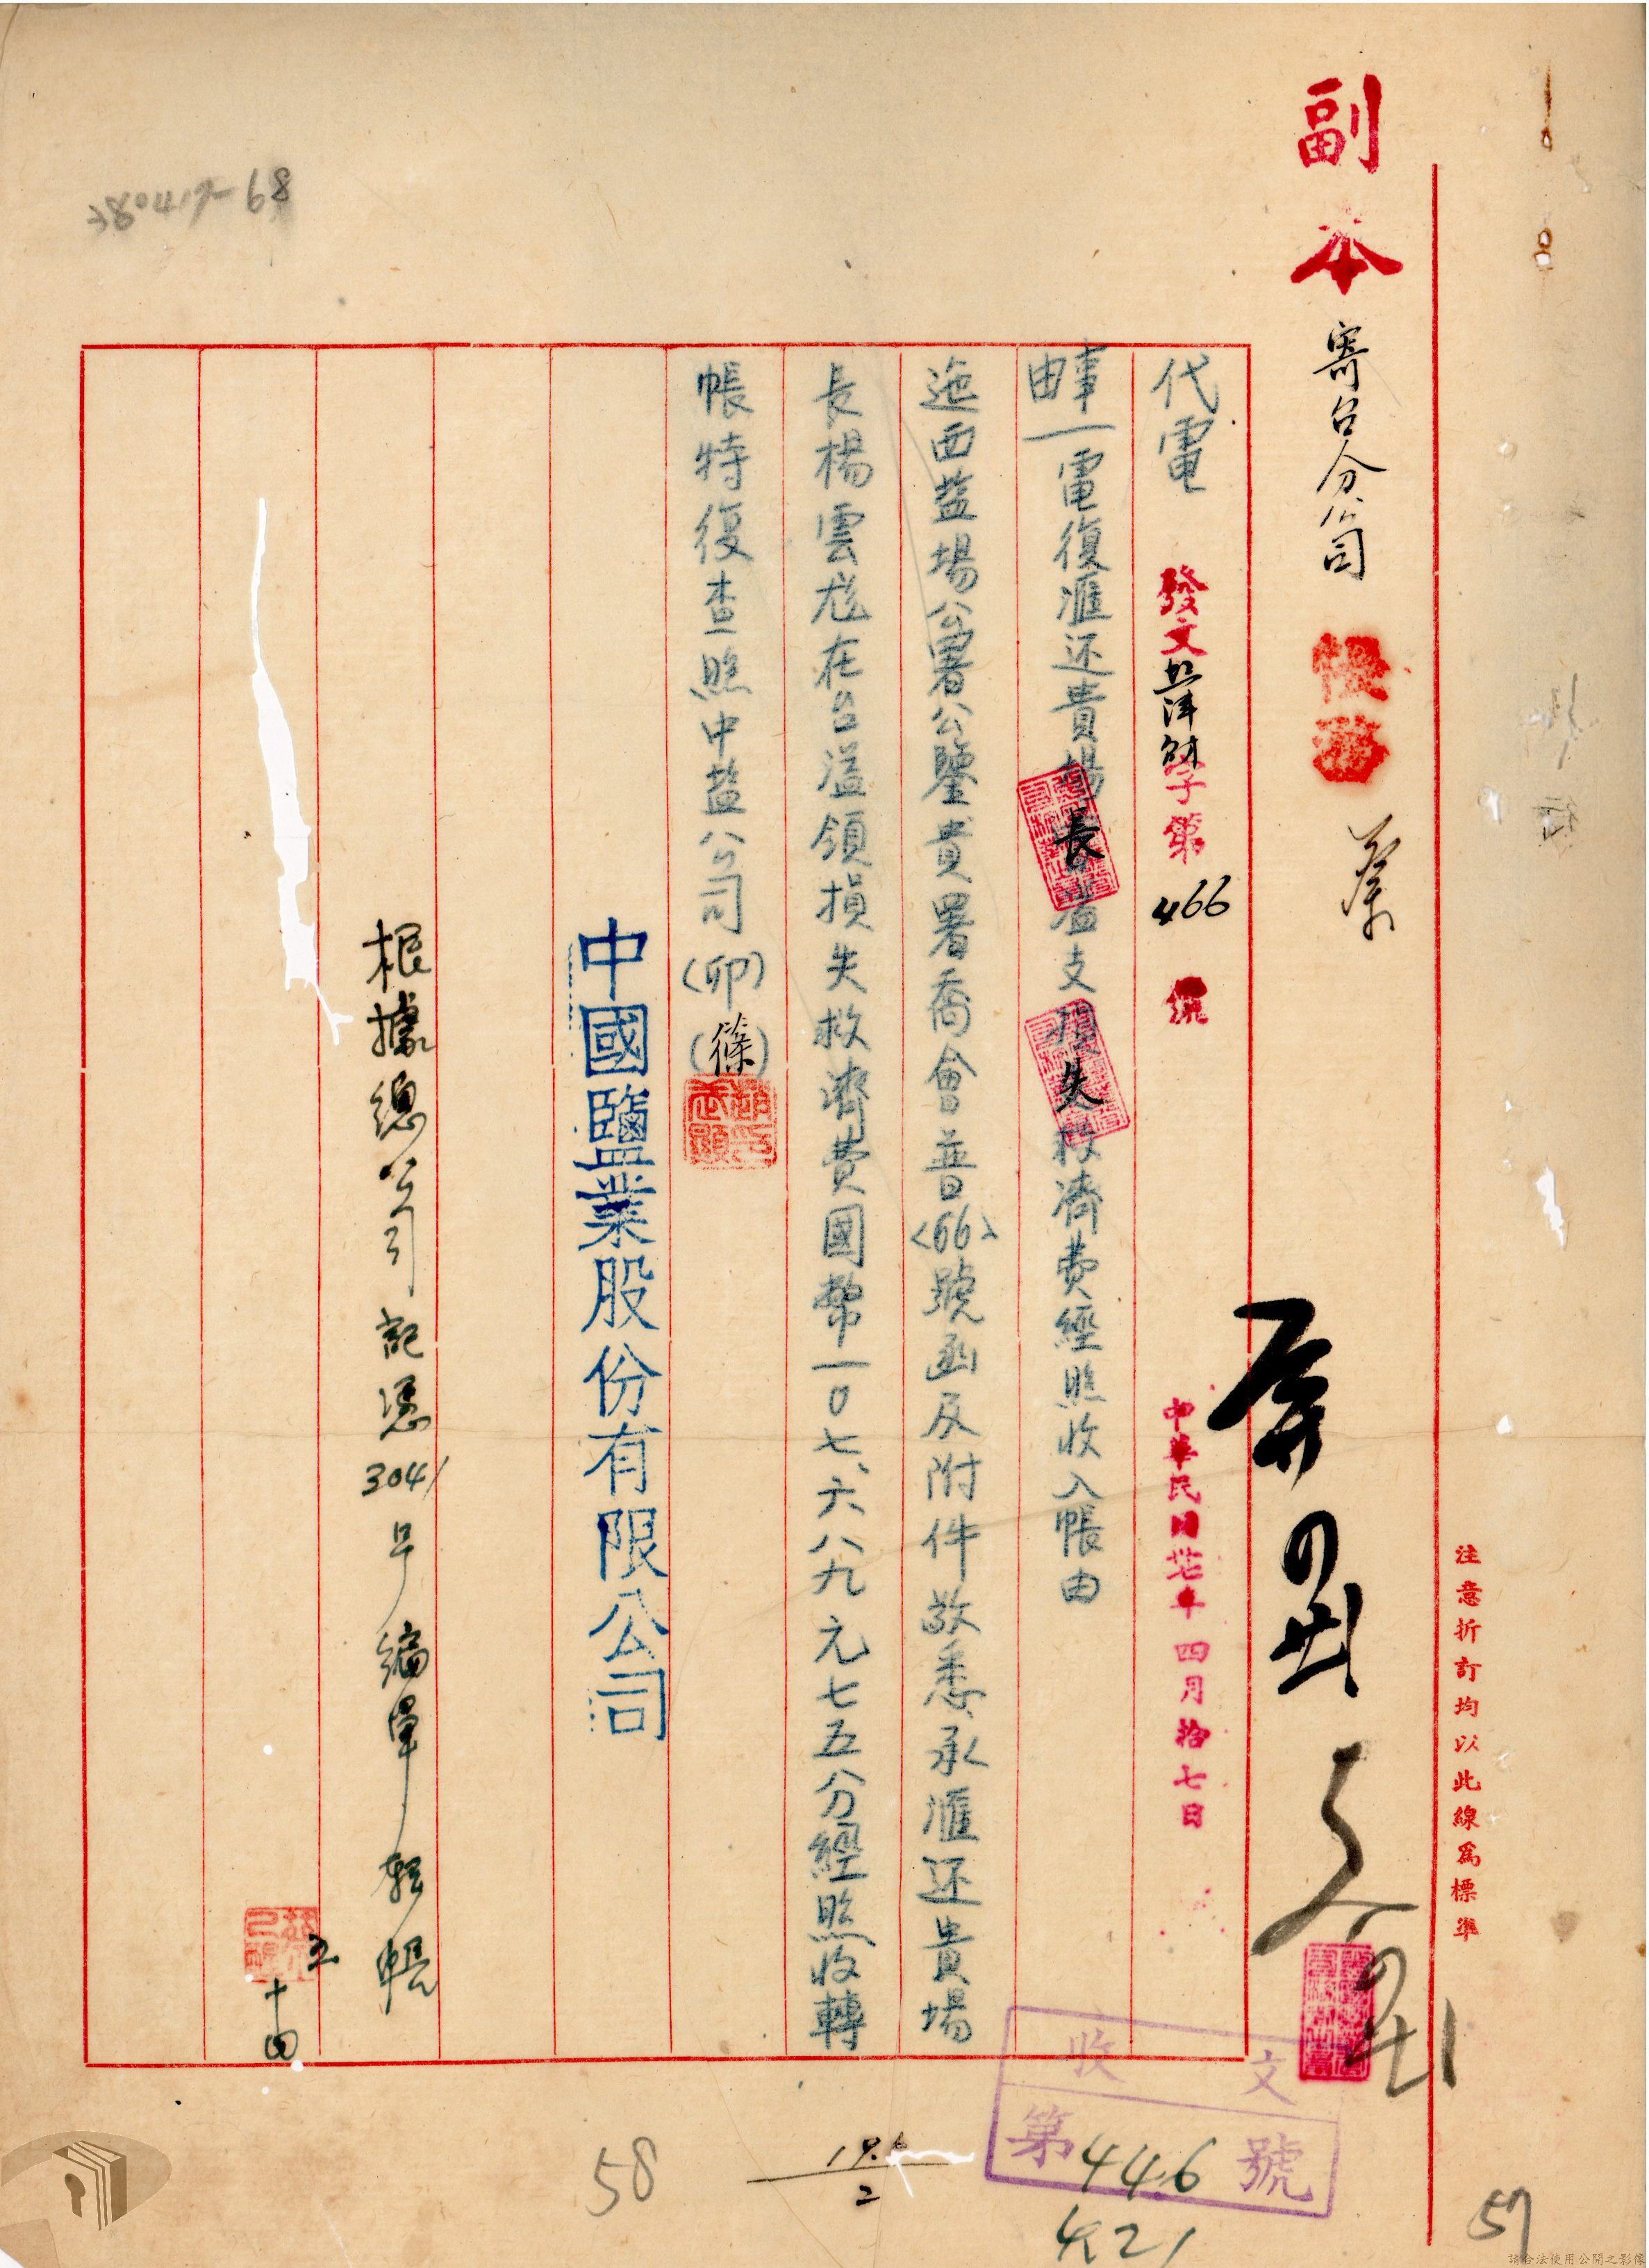 副本 寄台分公司 帳務
注意折訂均以此線爲標準
代電 發文 字第466號 中華民國卅七年四月拾七日
事由 電復滙还貴場長溢支損失救濟費經照收入帳由
迤西盐場公署公鑒貴署喬會普<66>號函及附件敬悉承滙还貴場
長楊雲尨在台溢領損失救濟費國幣一0七、六八九元七五分經照收轉
帳特復查照中盐公司(卯)(篠)
中國鹽業股份有限公司
根據總公司記憑3041号編單轉帳
收文
第446號
4.21
58
57
請合法使用公開之影像